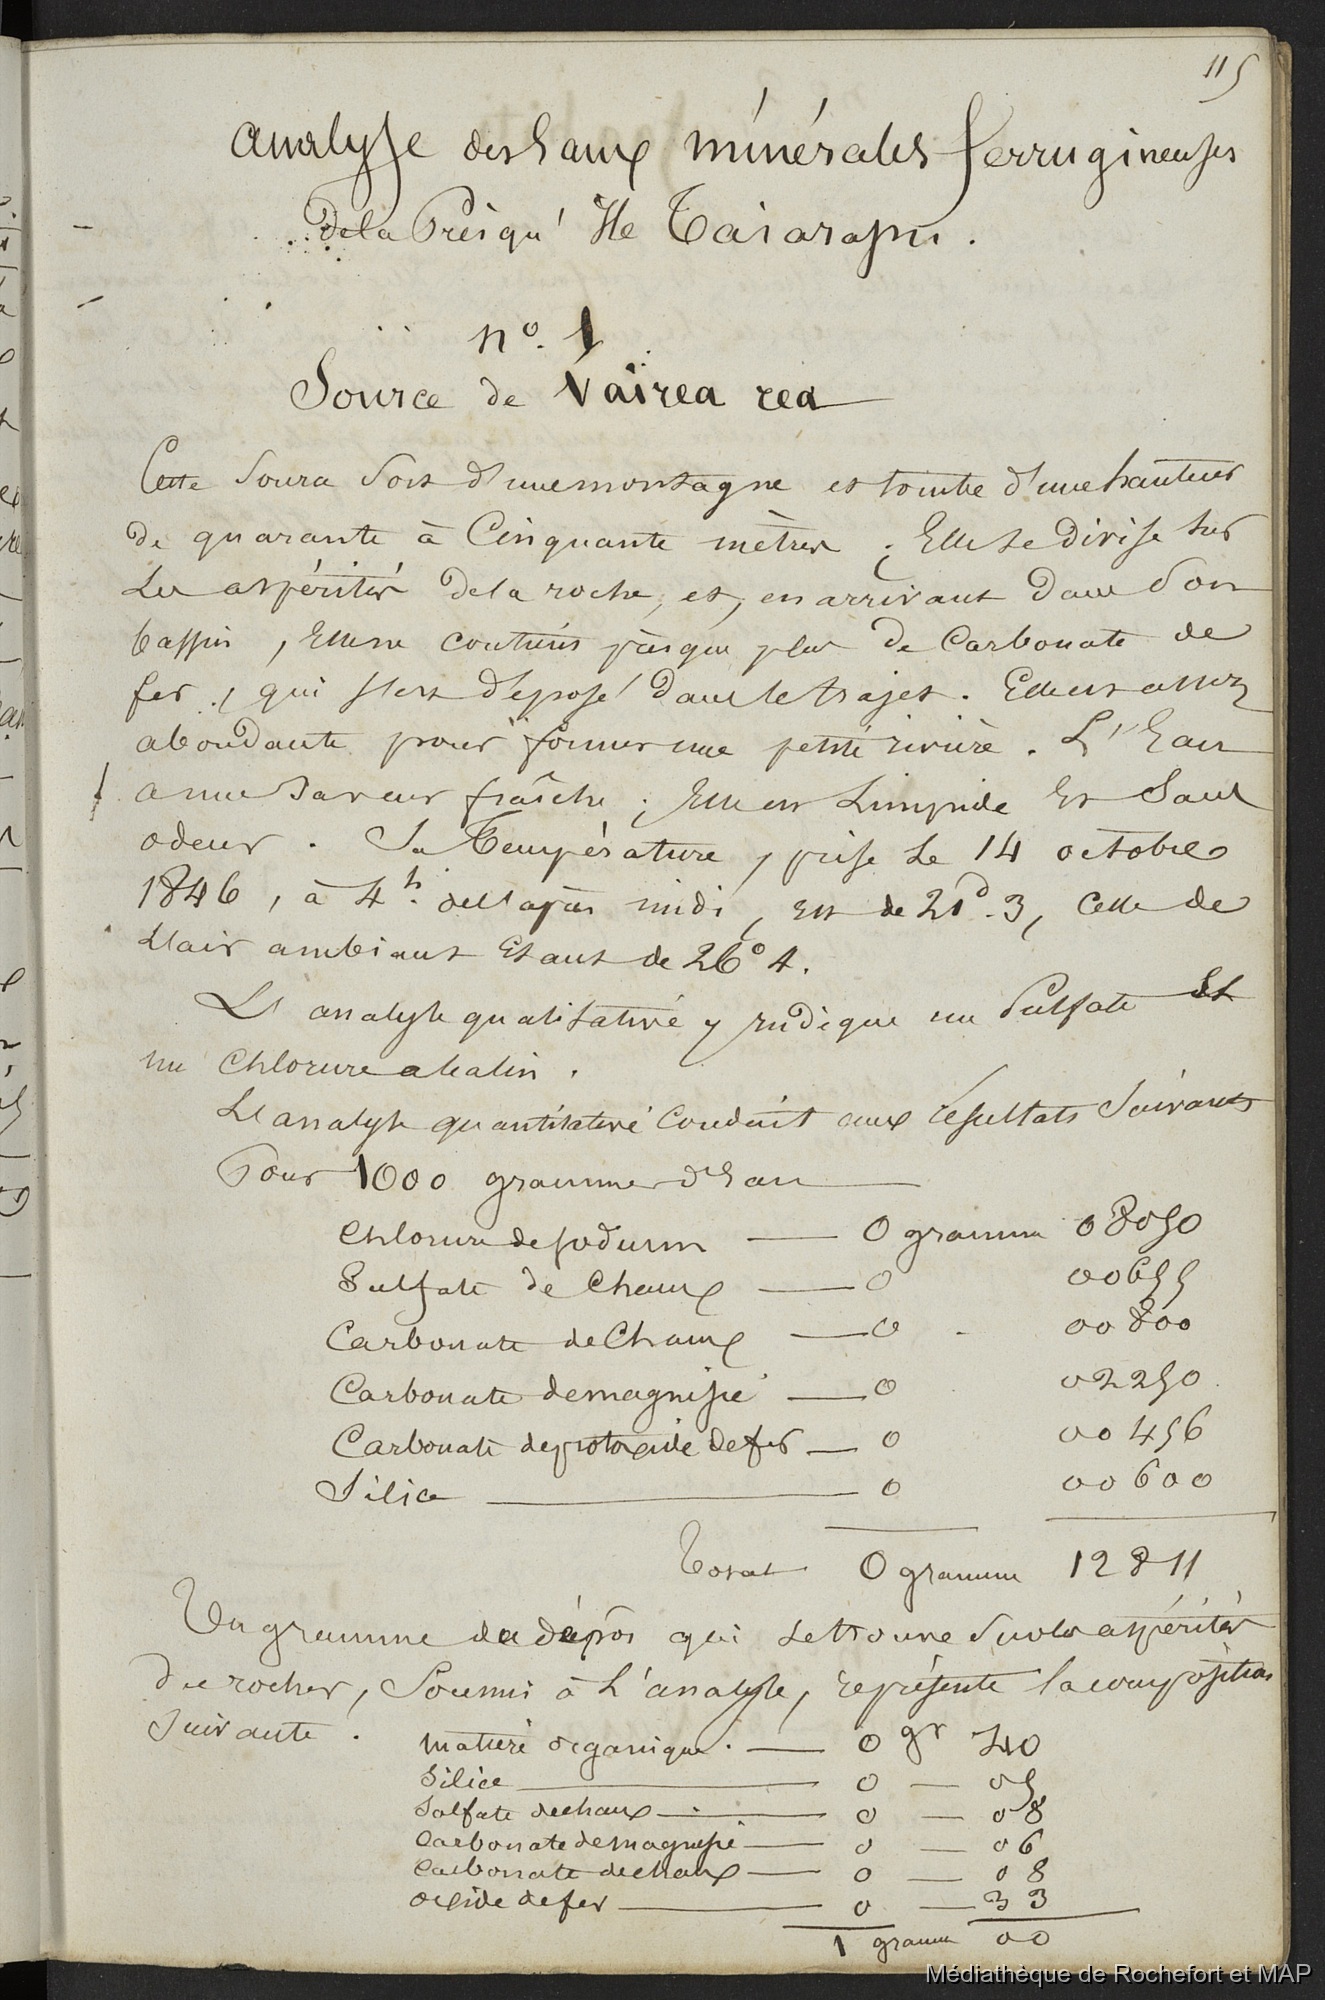 115
Analyse des Eaux minérales ferrugineuses
De la Presqu' Ile Taiarapu.
n°. 1
Source de Vaïrea rea
Cette source sort d'une montagne et tombe d'une hauteur
de quarante à Cinquante mètres ; Elle se divise sur
les aspérités de la roche, et, en arrivant dans son
bassin, Elle ne contient presque plus de Carbonate de
fer, qui s'est déposé dans le trajet. Elle est assez
abondante pour former une petite rivière. L'Eau
a une saveur fraîche ; Elle est Limpide Et Sans
odeur. Sa Température, prise le 14 octobre
1846, à 4h. de l'après midi, est de 21d.3, celle de
l'air ambiant Etant de 26°4.
L'analyse qualitative y indique un Sulfate Et
un Chlorure alcalin.
L'analyse quantitative Conduit aux résultats Suivants
Pour 1000 grammes d'Eau
Chlorure de sodium — 0 gramme 08050
Sulfate de Chaux — 0 00655
Carbonate de Chaux — 0 00800
Carbonate de magnésie — 0 02250
Carbonate de protoxide de fer — 0 00456
Silice — 0 00600
Total 0 gramme 12811
Un gramme de dépôt qui se trouve sur les aspérités
du rocher, Soumis à L'analyse, représente la composition
suivante.
Matière organique. — 0 gr 40
Silice — 0 — 05
Sulfate de chaux — 0 — 08
Carbonate de magnésie — 0 — 06
Carbonate de chaux — 0 — 08
Oxide de fer — 0 — 33
1 gramme 00
Médiathèque de Rochefort et MAP